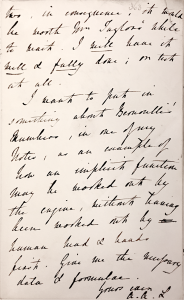 two, in consequence, it would
be worth Mr Taylor's while
to wait. I will have it
well & fully done; or not
at all.
I want to put in
something about Bernouilli's
Numbers, in one of my
Notes, as an example of
how an implicit function
may be worked out by
the engine, without having
been worked out by
human head & hands
first. Give me the necessary
data & formulae.
Yours ever
A. A. L